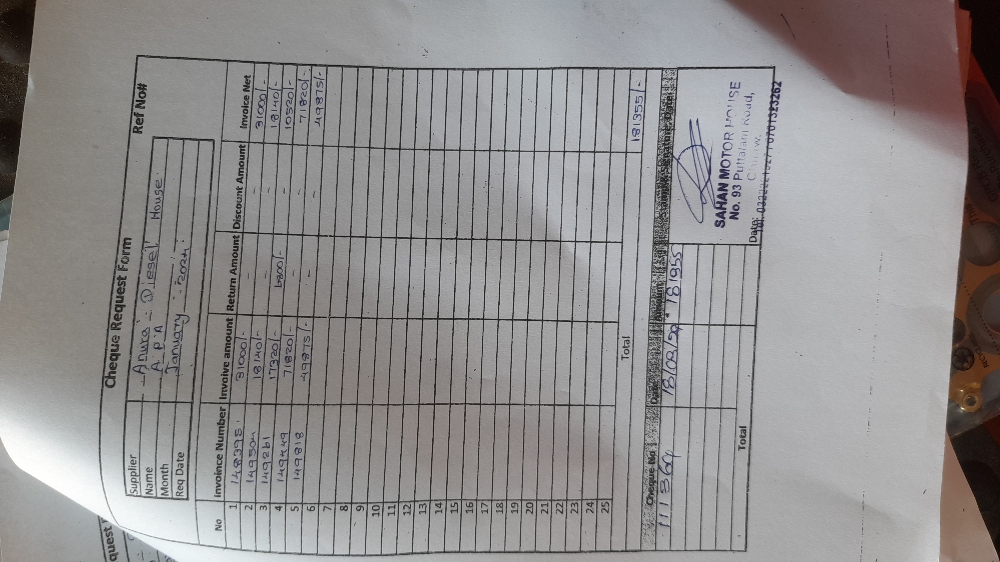 Cheque Request Form
Ref No#
Supplier Anura Diesel House
Name A P A
Month January 2024
Req Date
No Invoince Number Invoive amount Return Amount Discount Amount Invoice Net
1 148395 31000/- - - 31000/-
2 149504 18140/- - - 18140/-
3 149261 17320/- 6800/- - 10520/-
4 149449 71820/- - - 71820/-
5 149818 49875/- - - 49875/-
6
7
8
9
10
11
12
13
14
15
16
17
18
19
20
21
22
23
24
25
Total 181355/-
Cheque No Date Amount
Total
SAHAN MOTOR HOUSE
No. 93 Puttalam Road,
Date:
quest